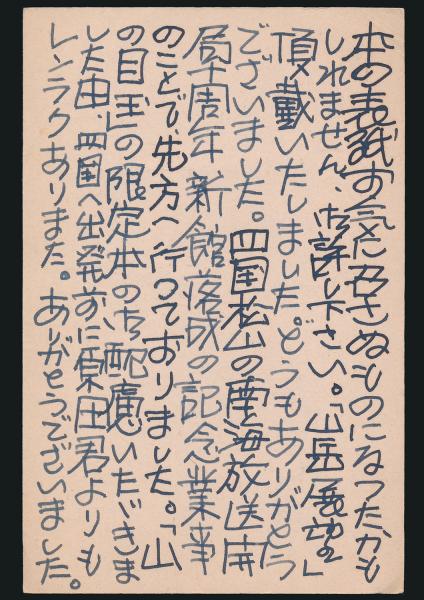 本の表紙す気に召さぬものになつたかも
しれません、お許し下さい。「山岳展望」
頂戴いたしました。どうもありがとう
ございました。四国松山の南海放送開
局十周年新館落成の記念業事
のことで、先方へ行つておりました。「山
の目玉」の限定本のお配慮いたゞきま
した由、四国へ出発前に原田君よりも
レンラクありました。ありがとうございました。